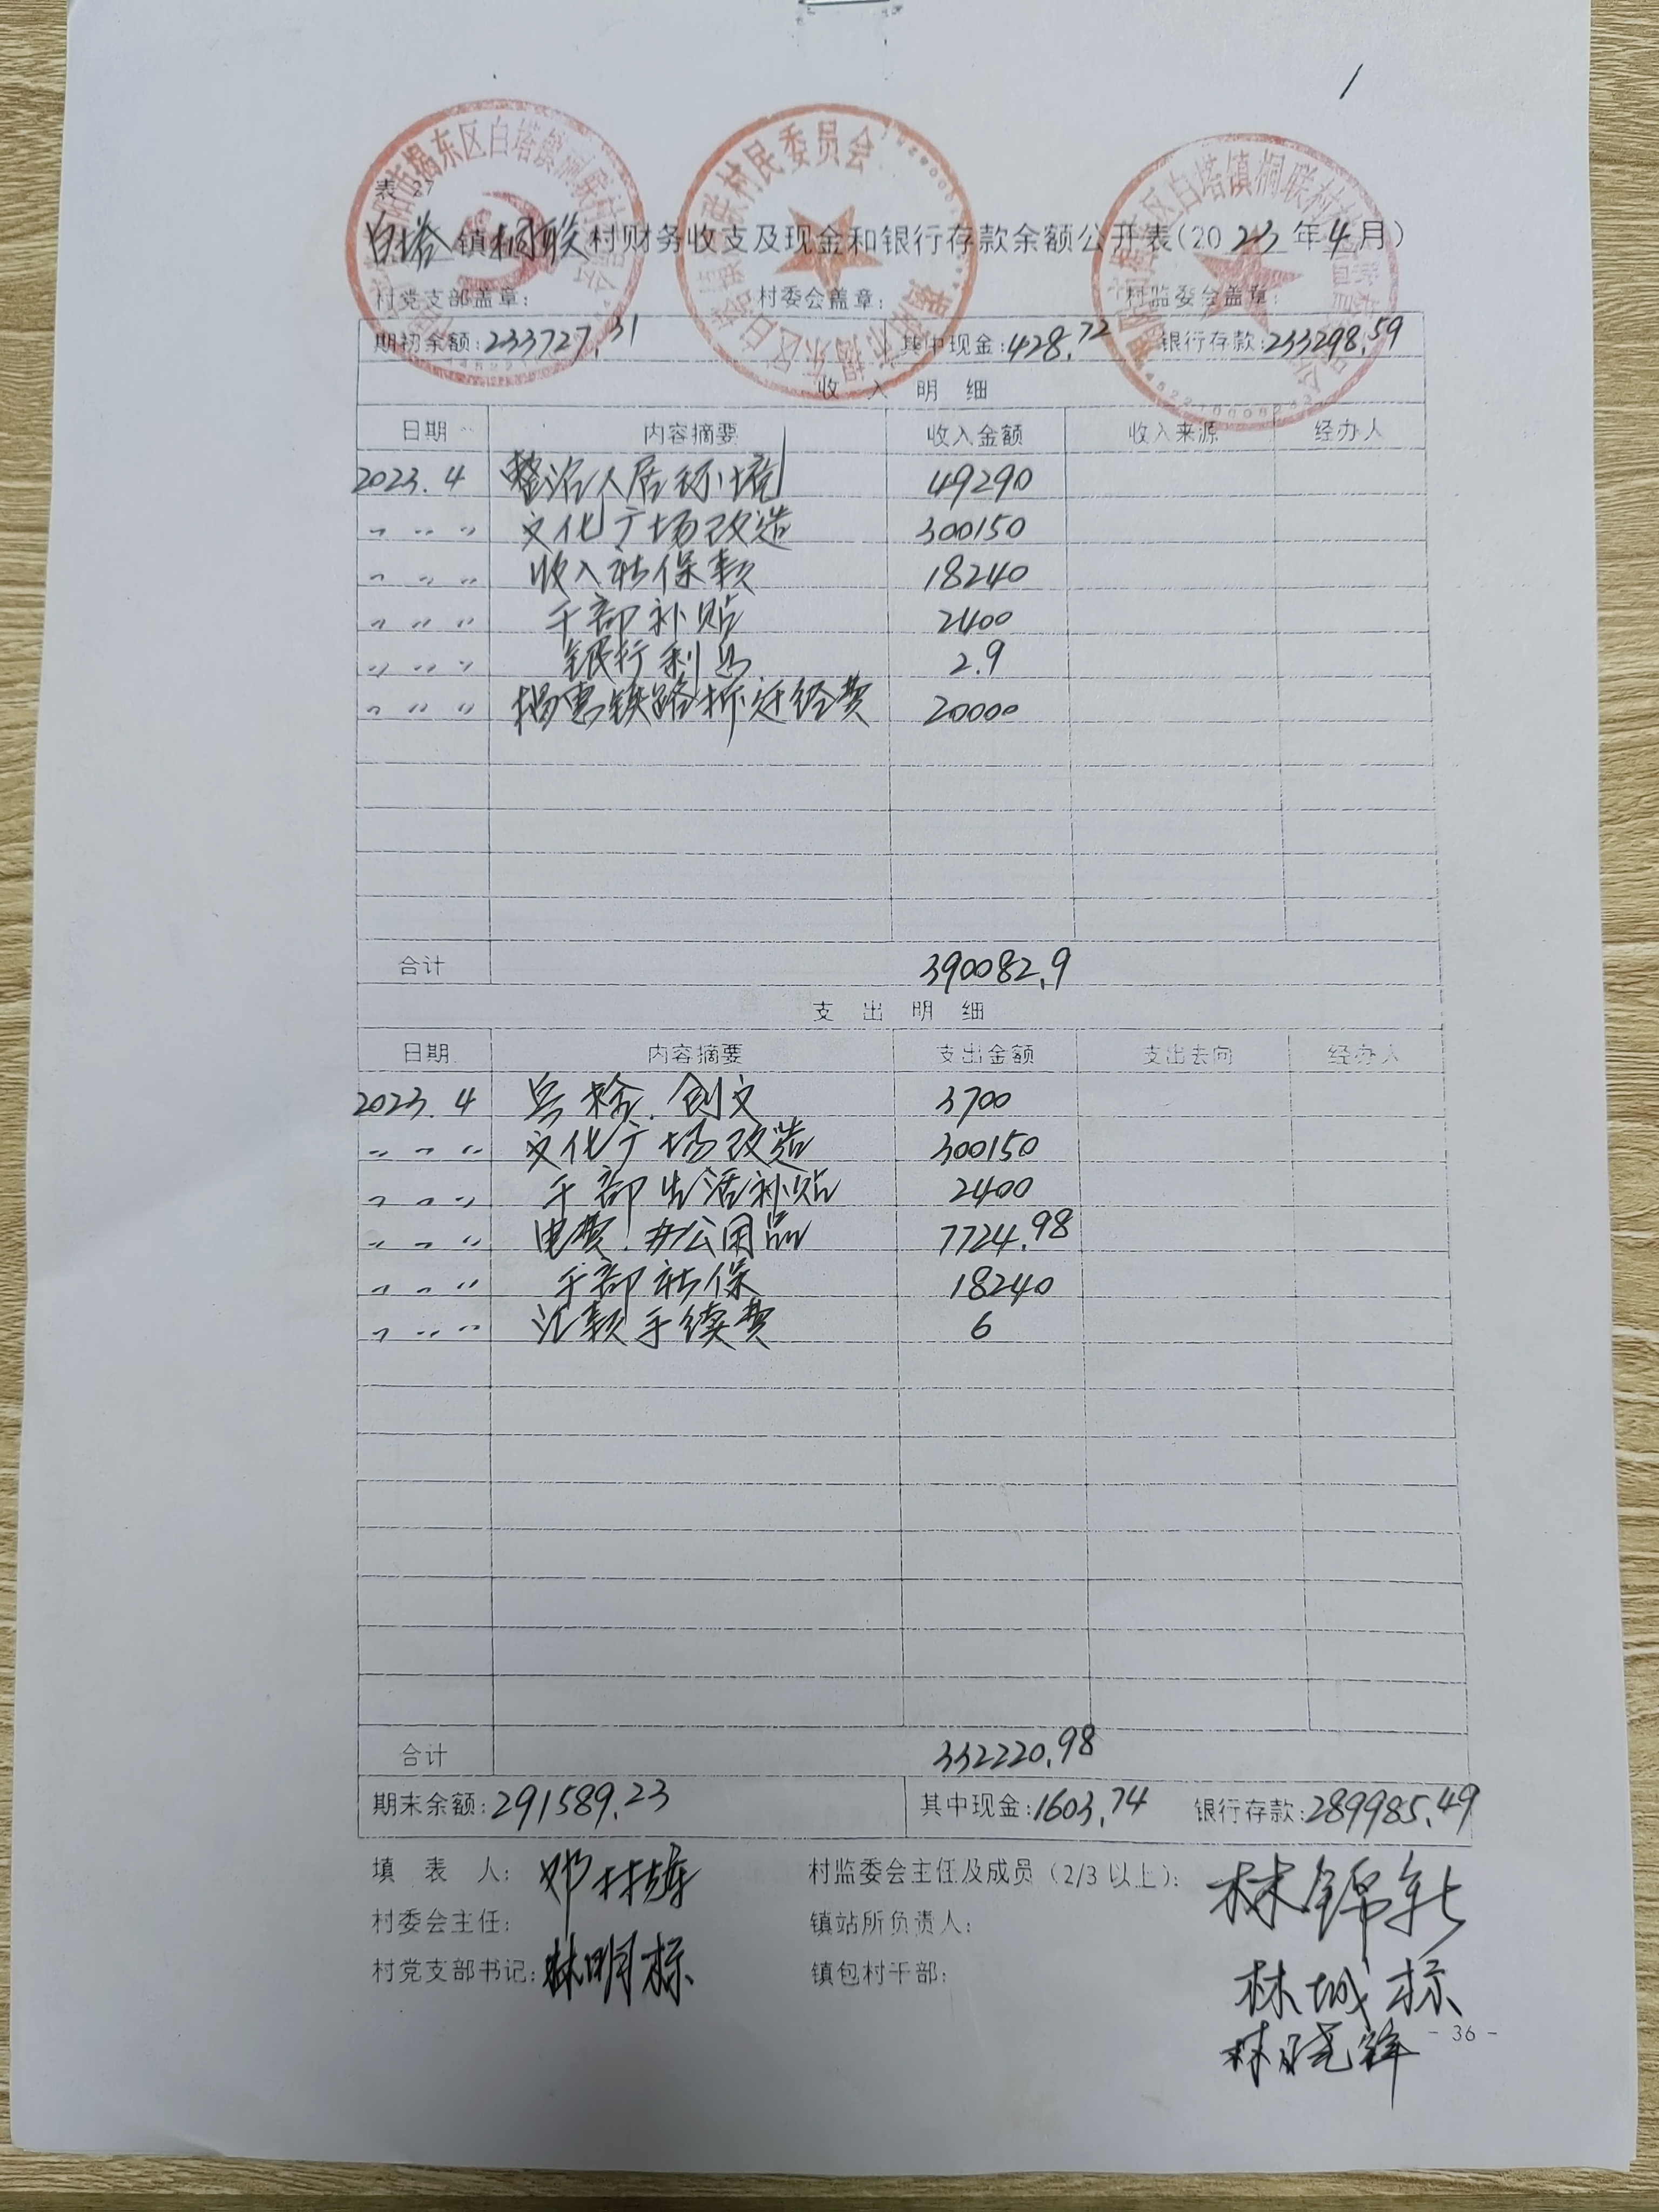 表 27
白塔镇桐联村财务收支及现金和银行存款余额公开表(2023年4月)
村党支部盖章: 村委会盖章: 村监委会盖章:
期初余额:233727.31 其中现金:428.72 银行存款:233298.59
收 入 明 细
日期 内容摘要 收入金额 收入来源 经办人
2023.4 整治人居环境 49290
〃 〃 〃 文化广场改造 300150
〃 〃 〃 收入社保款 18240
〃 〃 〃 干部补贴 2400
〃 〃 〃 银行利息 2.9
〃 〃 〃 揭惠铁路拆迁经费 20000
合计 390082.9
支 出 明 细
日期 内容摘要 支出金额 支出去向 经办人
2023.4 兵检.创文 3700
〃 〃 〃 文化广场改造 300150
〃 〃 〃 干部生活补贴 2400
〃 〃 〃 电费.办公用品 7724.98
〃 〃 〃 干部社保 18240
〃 〃 〃 汇款手续费 6
合计 332220.98
期末余额:291589.23 其中现金:1603.74 银行存款:289985.49
填 表 人: 村监委会主任及成员(2/3以上): 林锦新
村委会主任: 镇站所负责人:
村党支部书记: 林明标 镇包村干部: 林城标
林晓锋
- 36 -